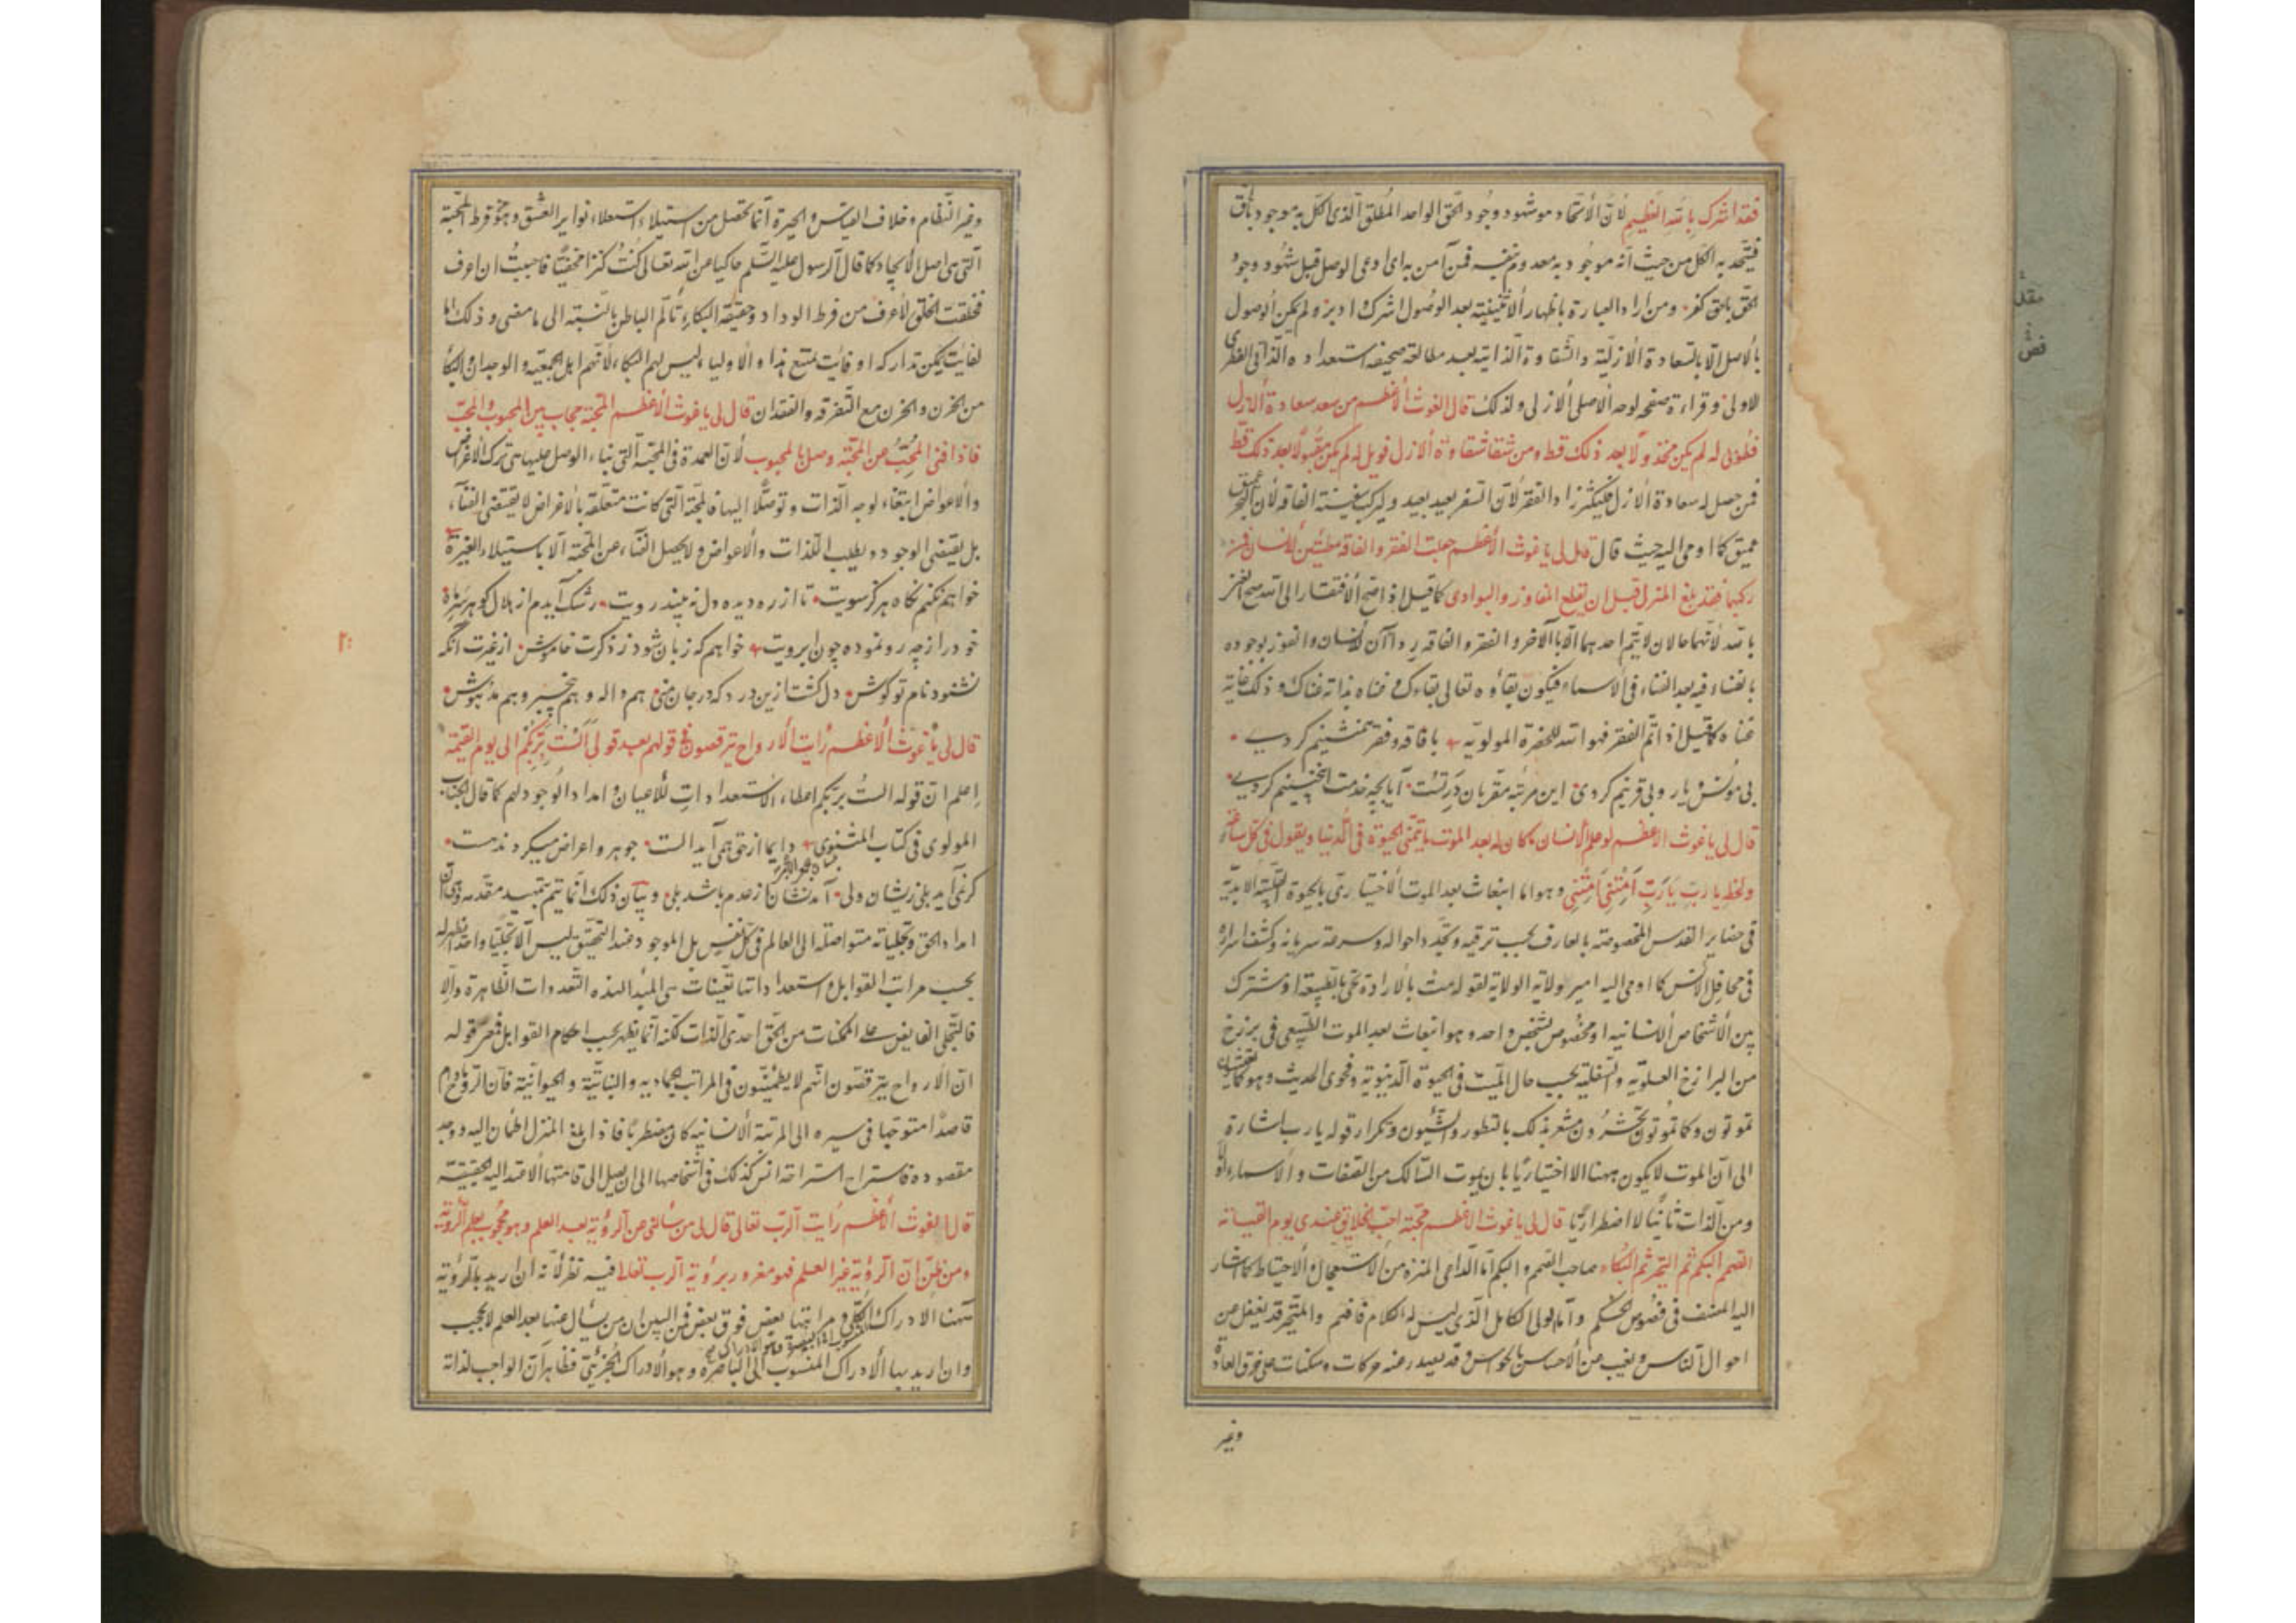 فقد اشرك بالله العظيم لان الاتحاد هو شهود وجود الحق الواحد المطلق الذى الكل به موجود بالحق
فيتحد به الكل من حيث انه موجود به معدوم بنفسه فمن آمن به اى ادعى الوصل قبل شهود وجود
الحق بالحق كفر ومن اراد العبارة باظهار الاثنينية بعد الوصول اشرك ولم يكن الوصول
بالاصل الا بالسعادة الازلية والشقاوة الذاتية بعد مطالعة صحيفة استعداده الذاتى الفطرى
الاولى وقراءة صفحه لوحه الاصلى الازلى ولذلك قال الغوث الاعظم من سعد سعادة الازل
فطوبى له لم يكن مخذولا بعد ذلك قط ومن شقا شقاوة الازل فويل له لم يكن مقبولا بعد ذلك قط
فمن حصل له سعادة الازل فليكثر زاد الفقر لان السفر بعيد بعيد وليركب سفينة الفاقة لان البحر عميق
عميق كما اوحى اليه حيث قال قال لى يا غوث الاعظم جعلت الفقر والفاقة مطيتين للانسان فمن
ركبهما فقد بلغ المنزل قبل ان يقطع المفاوز والبوادى كما قيل اذا صح الافتقار الى الله صح الغنى
بالله لانهما حالان لا يتم احدهما الا بالآخر والفقر والفاقة رداآن للانسان والفوز بوجوده
بالفناء فيه بعد الفناء فى الاسماء فيكون بقاؤه تعالى بقاءك وغناه بذاته غناك وذلك غاية
غناه كما قيل اذا تم الفقر فهو الله للحضرة المولوية با فاقه وفقر همنشينم كردى
بى مونس ويار وبى قرينم كردى اين مرتبه مقربان در تست آيا بچه خدمت اينچنينم كردى
قال لى يا غوث الاعظم لو علم الانسان ما كان له بعد الموت ما يتمنى الحيوة فى الدنيا ويقول فى كل ساعة
ولحظ يا رب يا رب امتنى امتنى وهو اما انبعاث بعد الموت الاختيارى بالحيوة القلبية الابدية
فى حضاير القدس المخصوصة بالعارف بحسب ترقيه وتجدد احواله وسرعة سريانه وكشف اسراره
فى محافل الانس كما اومى اليه امير ولاية الولاية لقوله مت بالارادة تحى بالطبيعة او مشترك
بين الاشخاص الانسانيه او مخصوص لشخص واحد وهو انبعاث بعد الموت الطبيعى فى برزخ
من البرازخ العلويه والسفليه بحسب حال الميت فى الحيوة الدنيويه وفحوى الحديث وهو كما تعيشون
تموتون وكما تموتون تحشرون مشعر بذلك بالتطور والشئون وتكرار قوله يا رب اشارة
الى ان الموت لا يكون ههنا الا اختياريا بان يموت السالك من الصفات والاسماء اولا
ومن الذات ثانيا لا اضطراريا قال لى يا غوث الاعظم محبة احب الخلايق عندى يوم القيامة
الصم البكم ثم التحير ثم البكاء صاحب الصم والبكم اما الداعى المنزه من الاستعجال والاحتياط كما اشار
اليه المصنف فى فصوص الحكم واما الولى الكامل الذى ليس له الكلام فافهم والمتحير قد يغفل من
احوال الناس ويغيب من الاحساس بالحواس وقد يصدر عنه حركات وسكنات على خرق العادة
وغير
وغير النظام وخلاف القياس والحيرة انما تحصل من استيلاء استعلاء نواير العشق وهو فرط المحبة
التى هى اصل الايجاد كما قال الرسول عليه السلم حاكيا عن الله تعالى كنت كنزا مخفيا فاحببت ان اعرف
فخلقت الخلق لاعرف من فرط الوداد وحقيقة البكاء تألم الباطن بالنسبة الى ما مضى وذلك اما
لفايت يمكن تداركه او فايت يمتنع هذا والاولياء ليس لهم البكاء لانهم اهل الجمعية والوجدان والبكا
من الحزن والحزن مع التفرقه والفقدان قال لى يا غوث الاعظم المحبة حجاب بين المحبوب والمحب
فاذا افنى المحب من المحبة وصل بالمحبوب لان العمدة فى المحبة التى بناء الوصل عليها هى ترك الاغراض
والاعواض ابتغاء لوجه الذات وتوصلا اليها فالمحبة التى كانت متعلقة بالاغراض لا يقتضى الفناء
بل يقتضى الوجود ويطلب اللذات والاعواض ولا يحصل الفناء عن المحبة الا باستيلاء الغيرة
خواهم نكنم نكاه هرگز سويت تا از ره ديده دل نبيند رويت رشك آيدم از هلال كو هر سر ماه
خود را ز چه رو نموده چون ابرويت خواهم كه زبان شود ز ذكرت خاموش از غيرت آنكه
نشنود نام تو گوش دل گشت ازين درد كه در جان منى هم واله و هم بيخبر و هم مدهوش
قال لى يا غوث الاعظم رايت الارواح يترقصون فى قولهم بعد قولى الست بربكم الى يوم القيمة
اعلم ان قوله الست بربكم اعطاء الاستعدادات للاعيان وامداد الوجود لهم كما قال الجناب
المولوى فى كتاب المثنوى دايما از حق همى آيد الست جوهر و اعراض ميگردند هست
گر نمى آيد بلى زيشان ولى آمدنشان از عدم باشد بلى وبيان ذلك انما يتم بتمهيد مقدمه وهى ان
امداد الحق وتجلياته متواصلة الى العالم فى كل نفس بل الموجود عند التحقيق ليس الا تجليا واحدا يظهر له
بحسب مراتب القوابل واستعداداتها تعينات هى المبدا لهذه التعددات الظاهرة والا
فالتجلى الفايض على الممكنات من الحق احدى الذات لكنه انما يظهر بحسب احكام القوابل فمعنى قوله
ان الارواح يترقصون انهم لا يطمئنون فى المراتب الجماديه والنباتية والحيوانية فان الروح ما دام
قاصدا متوجها فى سيره الى المرتبة الانسانيه كان مضطربا فاذا بلغ المنزل اطمأن اليه ووجد
مقصوده فاستراح استراحة انس كذلك فى اشخاصها الى ان يصل الى قامتها الاعتداليه الحقيقية
قال الغوث الاعظم رايت الرب تعالى قال لى من سألنى عن الرؤية بعد العلم وهو محجوب بعلم الرؤية
ومن ظن ان الرؤية غير العلم فهو مغرور برؤية الرب تعالى فيه نظر لانه ان اريد بالرؤية
ههنا الادراك الكلى ومراتبها بعض فوق بعض فمن البين ان من يسأل عنها بعد العلم لا يحجب
وان اريد بها الادراك المنسوب الى الباصره وهو الادراك الجزئى فظاهر ان الواجب لذاته